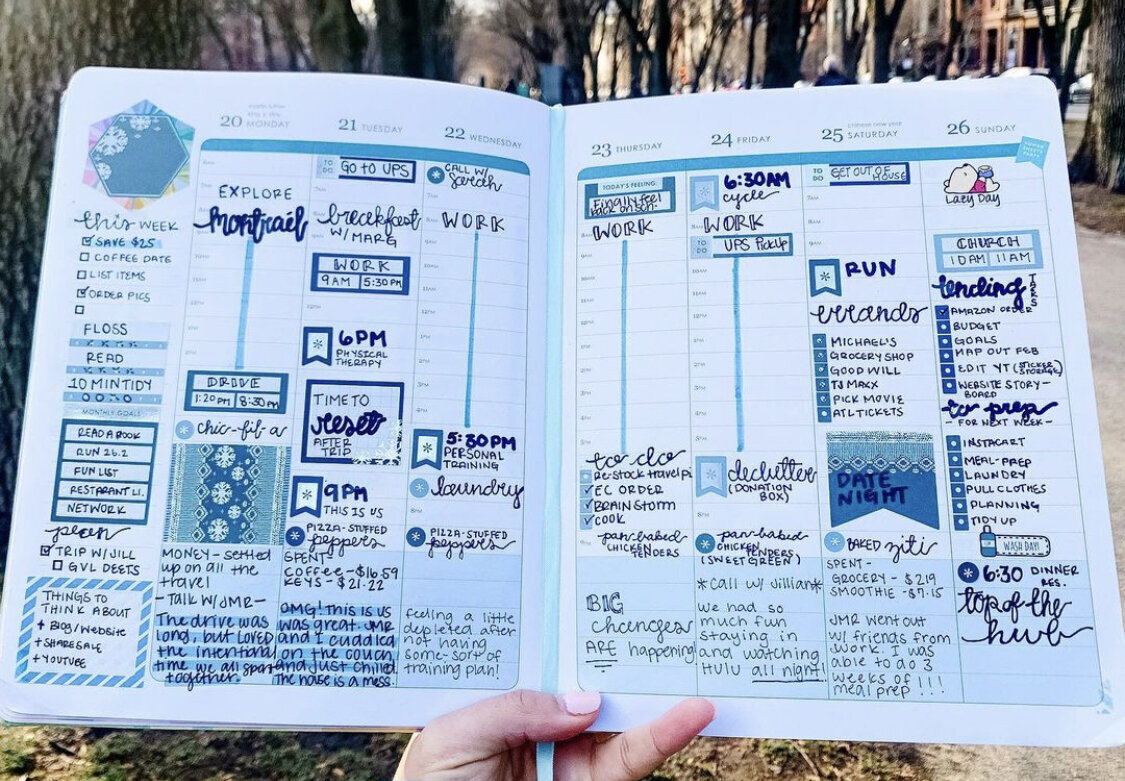 20 MONDAY
21 TUESDAY
22 WEDNESDAY
23 THURSDAY
24 FRIDAY
chinese new year
25 SATURDAY
26 SUNDAY
this WEEK
SAVE $25
COFFEE DATE
LIST ITEMS
ORDER PICS
FLOSS
READ
10 MIN TIDY
MONTHLY GOALS
READ A BOOK
RUN 26.2
FUN LIST
RESTARANT LI.
NETWORK
plan
TRIP W/JILL
GVL DEETS
THINGS TO
THINK ABOUT
+ Blog/Website
+ SHARESALE
+ YOUTUBE
EXPLORE
montreal
DRIVE
1:20 PM 8:30 PM
chic-fil-a
MONEY - settled
up on all the
travel
- Talk W/JMR -
The drive was
long, but LOVED
the intentional
time we all spent
together.
TO DO
GO TO UPS
breakfast
W/ MARG
WORK
9 AM 5:30 PM
6PM
PHYSICAL
THERAPY
TIME TO
reset
AFTER
TRIP
9PM
THIS IS US
PIZZA-STUFFED
peppers
SPENT-
COFFEE-$16.59
KEYS-$21.22
OMG! this is us
was great. JMR
and I cuddled
on the couch
and just chilled.
The house is a mess.
CALL W/
Sarah
WORK
5:30PM
PERSONAL
TRAINING
laundry
PIZZA-STUFFED
peppers
feeling a little
depleted after
not having
some sort of
training plan!
TODAY'S FEELING:
Finally feel
back on sch.
WORK
to do
re-stock travel
EC ORDER
BRAINSTORM
COOK
pan-baked
CHICKEN TENDERS
BIG
changes
ARE happening
6:30AM
cycle
WORK
TO DO
UPS PickUp
declutter
(DONATION
BOX)
pan-baked
CHICKEN TENDERS
(SWEET GREEN)
*Call w/ Jillian*
we had so
much fun
staying in
and watching
HULU all night!
TO DO
GET OUT OF
HOUSE
RUN
errands
MICHAEL'S
GROCERY SHOP
GOOD WILL
TJ MAXX
PICK MOVIE
ATL TICKETS
DATE
NIGHT
BAKED ziti
SPENT-
GROCERY - $219
SMOOTHIE - $7.15
JMR went out
w/ friends from
work. I was
able to do 3
weeks of
meal prep!!!
Lazy Day
CHURCH
10 AM 11 AM
TASKS
AMAZON ORDER
BUDGET
GOALS
MAP OUT FEB
EDIT YT (STICKER STORAGE)
WEBSITE STORY-
BOARD
to prep
- FOR NEXT WEEK -
INSTACART
MEAL-PREP
LAUNDRY
PULL CLOTHES
PLANNING
TIDY UP
WASH DAY!
6:30 DINNER
RES.
top of the
hub